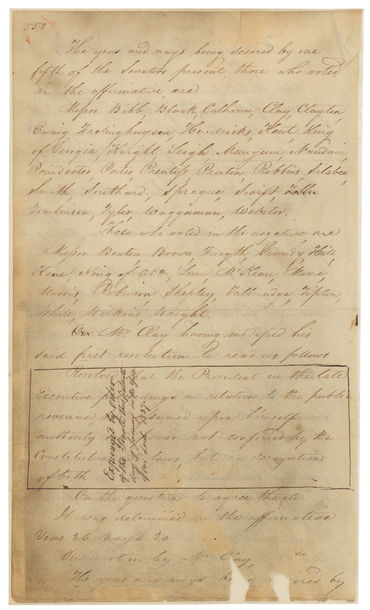 552
The yeas and nays being desired by one
fifth of the Senators present, those who voted
in the affirmative are
Messrs Bibb, Black, Calhoun, Clay, Clayton
Ewing, Frelinghuysen, Hendricks, Kent, King
of Georgia, Knight, Leigh, Mangum, Naudain
Poindexter, Porter, Prentiss, Preston, Robbins, Silsbee,
Smith, Southard, Sprague, Swift,
Tomlinson, Tyler, Waggaman, Webster.
Those who voted in the negative are
Messrs Benton, Brown, Forsyth, Grundy, Hill
Kane, King of Ala, Linn, McKean, Moore,
Morris, Robinson, Shepley, Tallmadge, Tipton,
White, Wilkins, Wright.
Mr Clay having modified his
said first resolution to read as follows
Resolved, that the President in the late
Executive proceedings in relation to the public
revenue, has assumed upon himself
authority and power not conferred by the
Constitution and laws, but in derogation
of both
Expunged by order
of the Senate
day of January in the year
of our Lord 1837
On the question to agree thereto
It was determined in the affirmative
Yeas 26 Nays 20
On motion by Mr Clay,
The yeas and nays being desired by